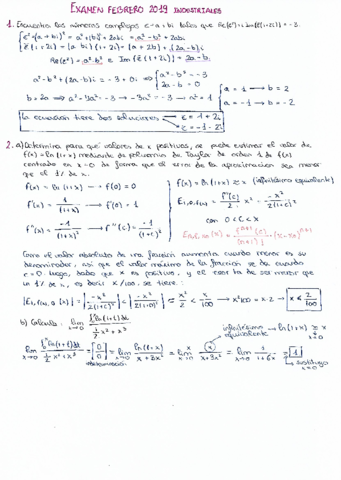 EXAMEN FEBRERO 2019 INDUSTRIALES
1. Encuentra los números complejos z=a+bi tales que Re(z²)=Im(z̄(1+2i))=-3.
z²=(a+bi)²=a²+(bi)²+2abi=a²-b²+2abi
z̄(1+2i)=(a-bi)(1+2i)=(a+2b)+(2a-b)i
Re(z²)=a²-b² e Im(z̄(1+2i))=2a-b.
a²-b²+(2a-b)i=-3+0i ⟺ { a²-b²=-3
2a-b=0
b=2a → a²-4a²=-3 → -3a²=-3 → a²=1 { a=1 → b=2
a=-1 → b=-2
la ecuación tiene dos soluciones z=1+2i
z=-1-2i
2. a) Determina para qué valores de x positivos, se puede estimar el valor de
f(x)=ln(1+x) mediante de polinomio de Taylor de orden 1 de f(x)
centrado en x=0 de forma que el error de la aproximación sea menor
que el 1% de x.
f(x)=ln(1+x) → f(0)=0
f'(x)=1/(1+x) → f'(0)=1
f''(x)=-1/(1+x)² → f''(c)=-1/(1+c)²
f(x)=ln(1+x)≈x (infinitésimo equivalente)
E₁,₀f(x)=f''(c)/2 · x²=-x²/2(1+c)²
con 0<c<x
Como el valor absoluto de una fracción aumenta cuando menor es su
denominador, así que el valor máximo de la fracción se da cuando
c=0 luego, dado que x es positivo, y el error ha de ser menor que
un 1% de x, es decir x/100, se tiene:
|E₁,f,₀(x)|=|-x²/2(1+c)²|<|-x²/2(1+0)²|≤x²/2<x/100 → x²100<x·2 → x<2/100
b) Calcula: lim x→0 ∫₀ˣ ln(1+t)dt / ½x²+x³
infinitésimo equivalente → ln(1+x)≈x
lim x→0 ∫₀ˣ ln(1+t)dt / ½x²+x³ = [0/0] = lim x→0 ln(1+x)/x+3x² = lim x→0 x/x+3x² = lim x→0 1/1+6x = 1
sustituyo x=0